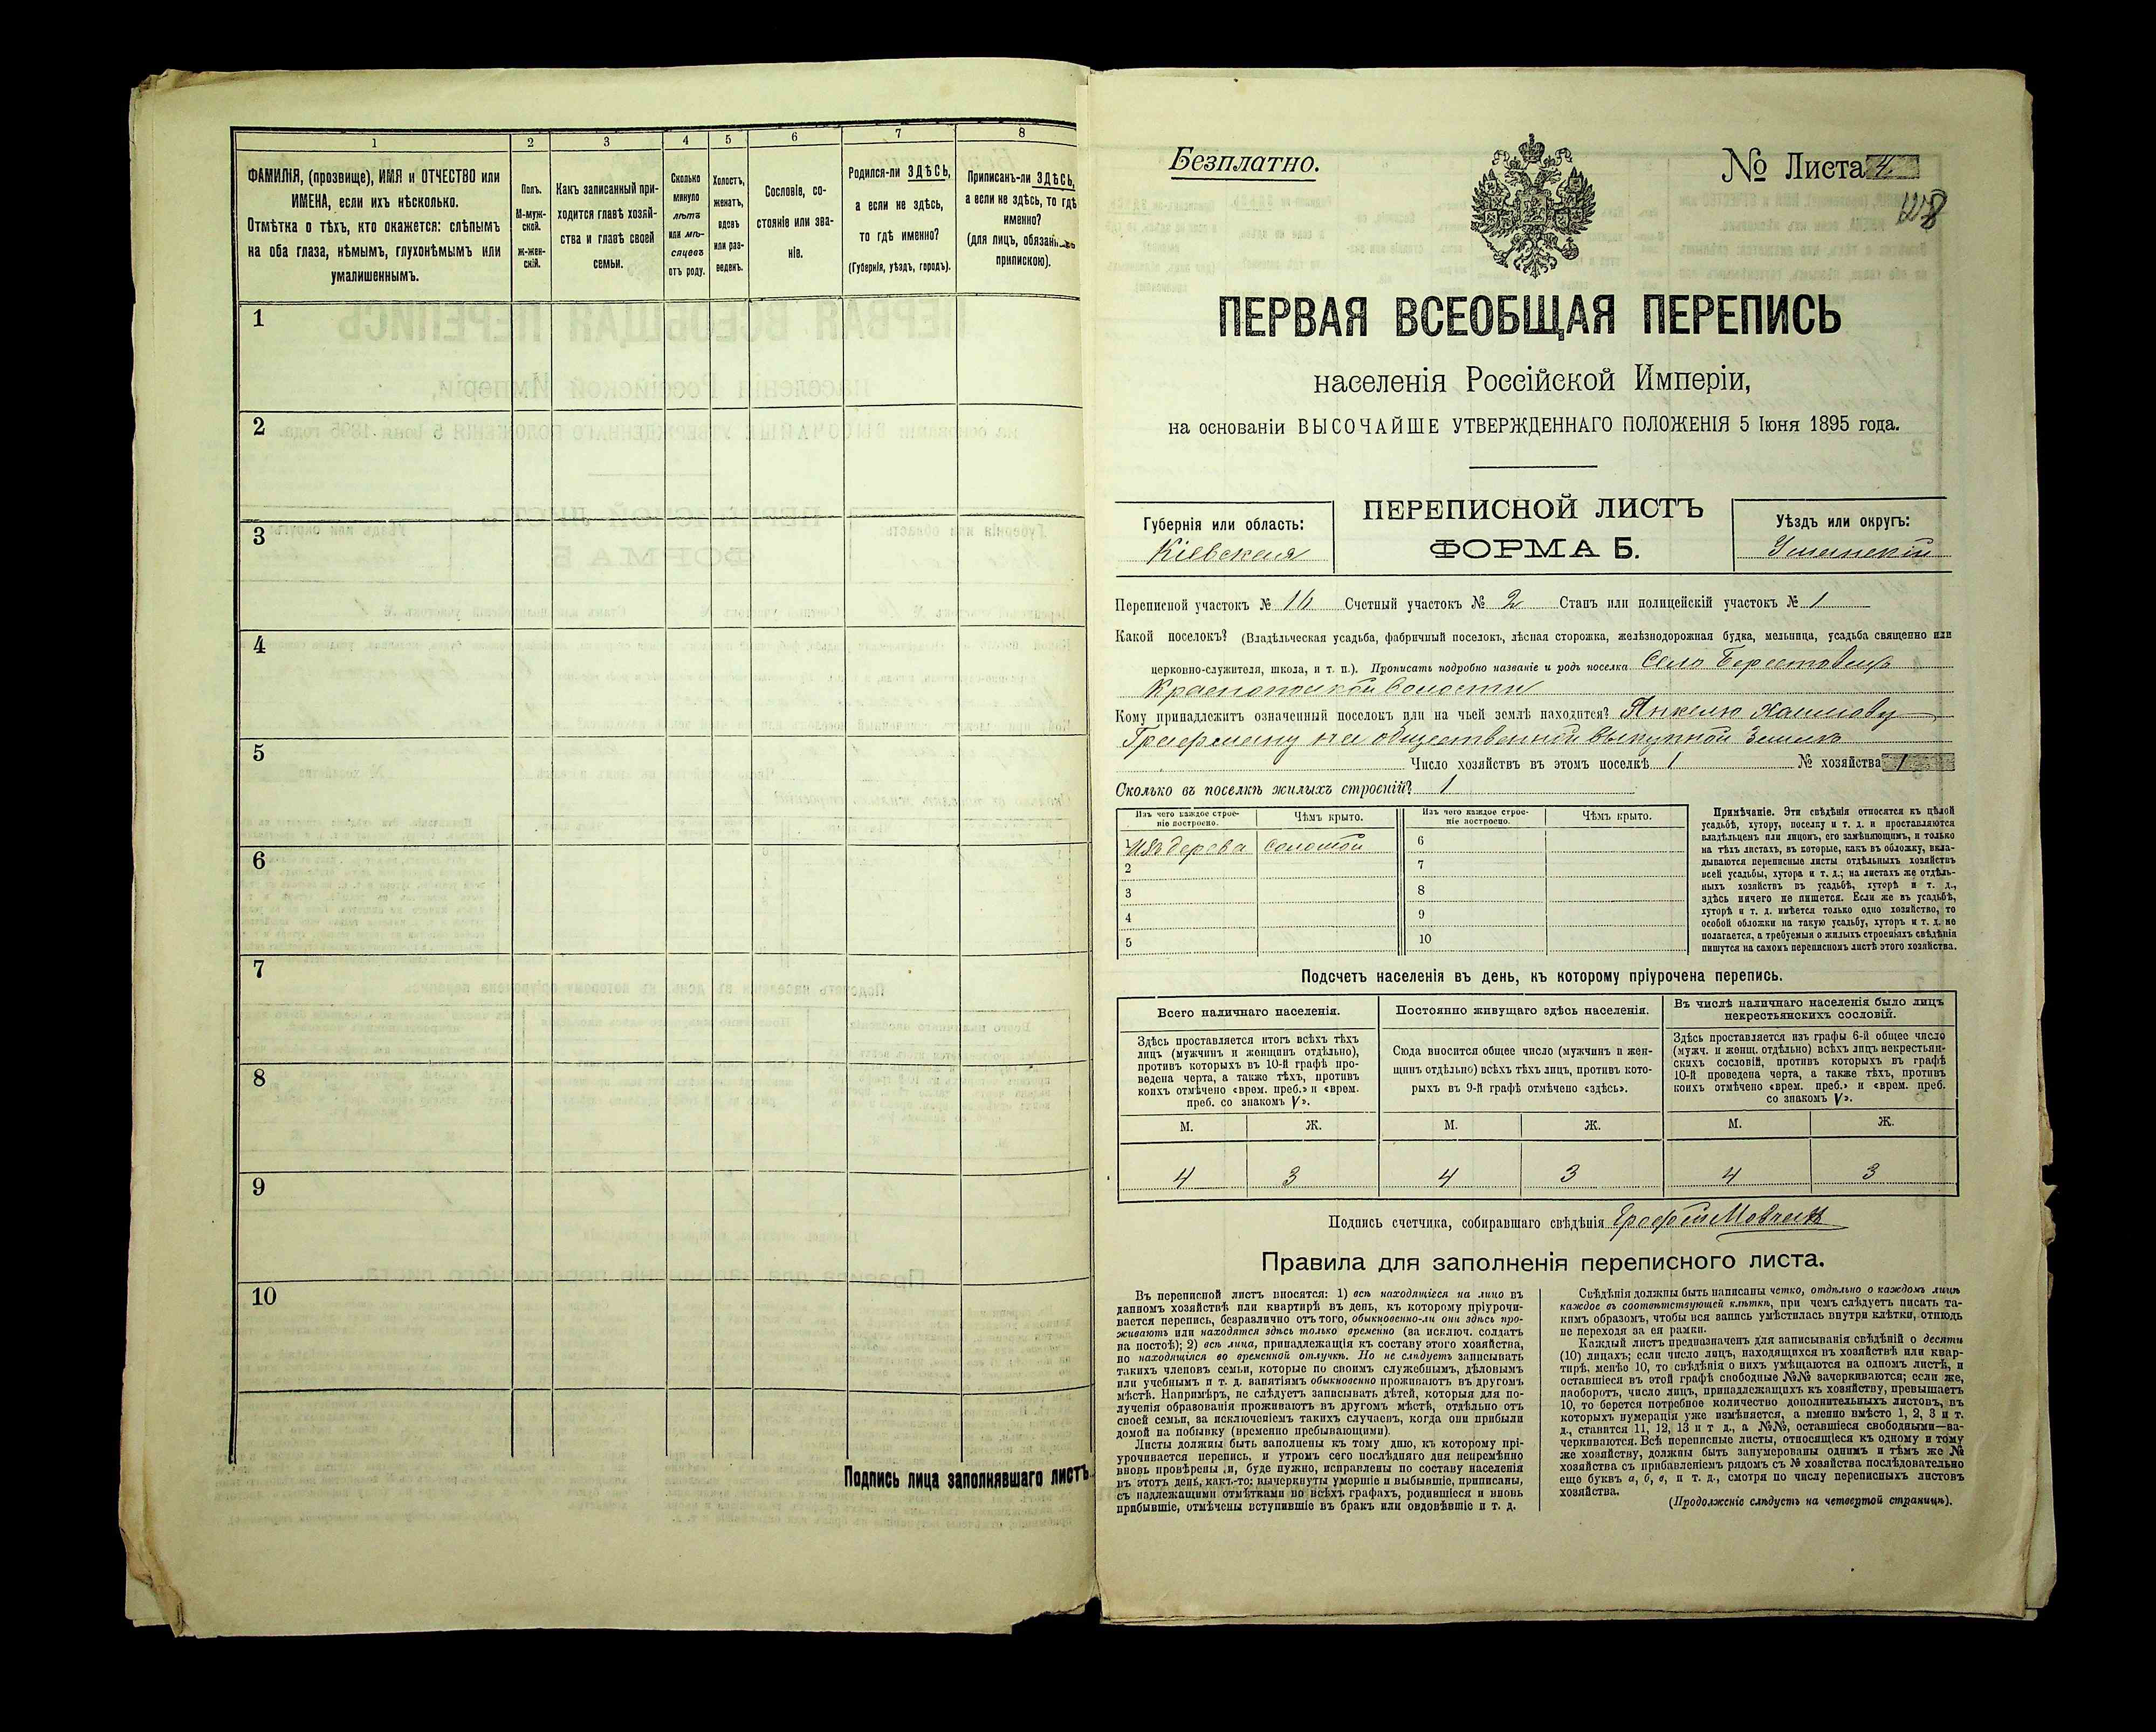 1
2
3
4
5
6
7
8
ФАМИЛІЯ, (прозвище), ИМЯ и ОТЧЕСТВО или
ИМЕНА, если ихъ нѣсколько.
Отмѣтка о тѣхъ, кто окажется: слѣпымъ
на оба глаза, нѣмымъ, глухонѣмымъ или
умалишеннымъ.
Полъ.
М-муж-
ской.
ж-жен-
скій.
Какъ записанный при-
ходится главѣ хозяй-
ства и главѣ своей
семьи.
Сколько
минуло
лѣтъ
или мѣ-
сяцевъ
отъ роду.
Холостъ,
женатъ,
вдовъ
или раз-
веденъ.
Сословіе, со-
стояніе или зва-
ніе.
Родился-ли ЗДѢСЬ,
а если не здѣсь,
то гдѣ именно?
(Губернія, уѣздъ, городъ).
Приписанъ-ли ЗДѢСЬ,
а если не здѣсь, то гдѣ
именно?
(для лицъ, обязан
припискою).
1
2
3
4
5
6
7
8
9
10
Подпись лица заполнявшаго листъ
Безплатно.
№ Листа 4
ПЕРВАЯ ВСЕОБЩАЯ ПЕРЕПИСЬ
населенія Россійской Имперіи,
на основаніи ВЫСОЧАЙШЕ УТВЕРЖДЕННАГО ПОЛОЖЕНІЯ 5 Іюня 1895 года.
Губернія или область:
Кіевская
ПЕРЕПИСНОЙ ЛИСТЪ
ФОРМА Б.
Уѣздъ или округъ:
Уманскій
Переписной участокъ № 16 Счетный участокъ № 2 Станъ или полицейскій участокъ № 1
Какой поселокъ? (Владѣльческая усадьба, фабричный поселокъ, лѣсная сторожка, желѣзнодорожная будка, мельница, усадьба священно или
церковно-служителя, школа, и т. п.). Прописать подробно названіе и родъ поселка Село Берестовецъ
волости
Кому принадлежитъ означенный поселокъ или на чьей землѣ находится? Янкелю Хаимову
Графману на общественной выкупной землѣ
Число хозяйствъ въ этомъ поселкѣ 1 № хозяйства 1
Сколько въ поселкѣ жилыхъ строеній? 1
Изъ чего каждое строе-
ніе построено.
Чѣмъ крыто.
Изъ чего каждое строе-
ніе построено.
Чѣмъ крыто.
1 Изъ дерева соломой
2
3
4
5
6
7
8
9
10
Примѣчаніе. Эти свѣдѣнія относятся къ цѣлой
усадьбѣ, хутору, поселку и т. д. и проставляются
владѣльцемъ или лицомъ, его замѣняющимъ, и только
на тѣхъ листахъ, въ которые, какъ въ обложку, вкла-
дываются переписные листы отдѣльныхъ хозяйствъ
всей усадьбы, хутора и т. д.; на листахъ же отдѣль-
ныхъ хозяйствъ въ усадьбѣ, хуторѣ и т. д.,
здѣсь ничего не пишется. Если же въ усадьбѣ,
хуторѣ и т. д. имѣется только одно хозяйство, то
особой обложки на такую усадьбу, хуторъ и т. д. не
полагается, а требуемыя о жилыхъ строеніяхъ свѣдѣнія
пишутся на самомъ переписномъ листѣ этого хозяйства.
Подсчетъ населенія въ день, къ которому пріурочена перепись.
Всего наличнаго населенія.
Здѣсь проставляется итогъ всѣхъ тѣхъ
лицъ (мужчинъ и женщинъ отдѣльно),
противъ которыхъ въ 10-й графѣ про-
ведена черта, а также тѣхъ, противъ
коихъ отмѣчено «врем. преб.» и «врем.
преб. со знакомъ V».
Постоянно живущаго здѣсь населенія.
Сюда вносится общее число (мужчинъ и жен-
щинъ отдѣльно) всѣхъ тѣхъ лицъ, противъ кото-
рыхъ въ 9-й графѣ отмѣчено «здѣсь».
Въ числѣ наличнаго населенія было лицъ
некрестьянскихъ сословій.
Здѣсь проставляется изъ графы 6-й общее число
(мужч. и женщ. отдѣльно) всѣхъ лицъ некрестьян-
скихъ сословій, противъ которыхъ въ графѣ
10-й проведена черта, а также тѣхъ, противъ
коихъ отмѣчено «врем. преб.» и «врем. преб.
со знакомъ V».
М. Ж. М. Ж. М. Ж.
4 3 4 3 4 3
Подпись счетчика, собиравшаго свѣдѣнія
Правила для заполненія переписного листа.
Въ переписной листъ вносятся: 1) всѣ находящіеся на лицо въ
данномъ хозяйствѣ или квартирѣ въ день, къ которому пріурочи-
вается перепись, безразлично отъ того, обыкновенно-ли они здѣсь про-
живаютъ или находятся здѣсь только временно (за исключ. солдатъ
на постоѣ); 2) всѣ лица, принадлежащія къ составу этого хозяйства,
но находящіяся во временной отлучкѣ. Но не слѣдуетъ записывать
такихъ членовъ семьи, которые по своимъ служебнымъ, дѣловымъ
или учебнымъ и т. д. занятіямъ обыкновенно проживаютъ въ другомъ
мѣстѣ. Напримѣръ, не слѣдуетъ записывать дѣтей, которыя для по-
лученія образованія проживаютъ въ другомъ мѣстѣ, отдѣльно отъ
своей семьи, за исключеніемъ такихъ случаевъ, когда они прибыли
домой на побывку (временно пребывающими).
Листы должны быть заполнены къ тому дню, къ которому прі-
урочивается перепись, и утромъ сего послѣдняго дня непремѣнно
вновь провѣрены и, буде нужно, исправлены по составу населенія
въ этотъ день, какъ-то: вычеркнуты умершіе и выбывшіе, приписаны,
съ надлежащими отмѣтками во всѣхъ графахъ, родившіеся и вновь
прибывшіе, отмѣчены вступившіе въ бракъ или овдовѣвшіе и т. д.
Свѣдѣнія должны быть написаны четко, отдѣльно о каждомъ лицѣ
каждое въ соотвѣтствующей клѣткѣ, при чемъ слѣдуетъ писать та-
кимъ образомъ, чтобы вся запись умѣстилась внутри клѣтки, отнюдь
не переходя за ея рамки.
Каждый листъ предназначенъ для записыванія свѣдѣній о десяти
(10) лицахъ; если число лицъ, находящихся въ хозяйствѣ или квар-
тирѣ, менѣе 10, то свѣдѣнія о нихъ умѣщаются на одномъ листѣ, и
оставшіеся въ этой графѣ свободные №№ зачеркиваются; если же,
наоборотъ, число лицъ, принадлежащихъ къ хозяйству, превышаетъ
10, то берется потребное количество дополнительныхъ листовъ, въ
которыхъ нумерація уже измѣняется, а именно вмѣсто 1, 2, 3 и т.
д., ставится 11, 12, 13 и т д., а №№, оставшіеся свободными—за-
черкиваются. Всѣ переписные листы, относящіеся къ одному и тому
же хозяйству, должны быть занумерованы однимъ и тѣмъ же №
хозяйства съ прибавленіемъ рядомъ съ № хозяйства послѣдовательно
еще буквъ а, б, в, и т. д., смотря по числу переписныхъ листовъ
хозяйства.
(Продолженіе слѣдуетъ на четвертой страницѣ).